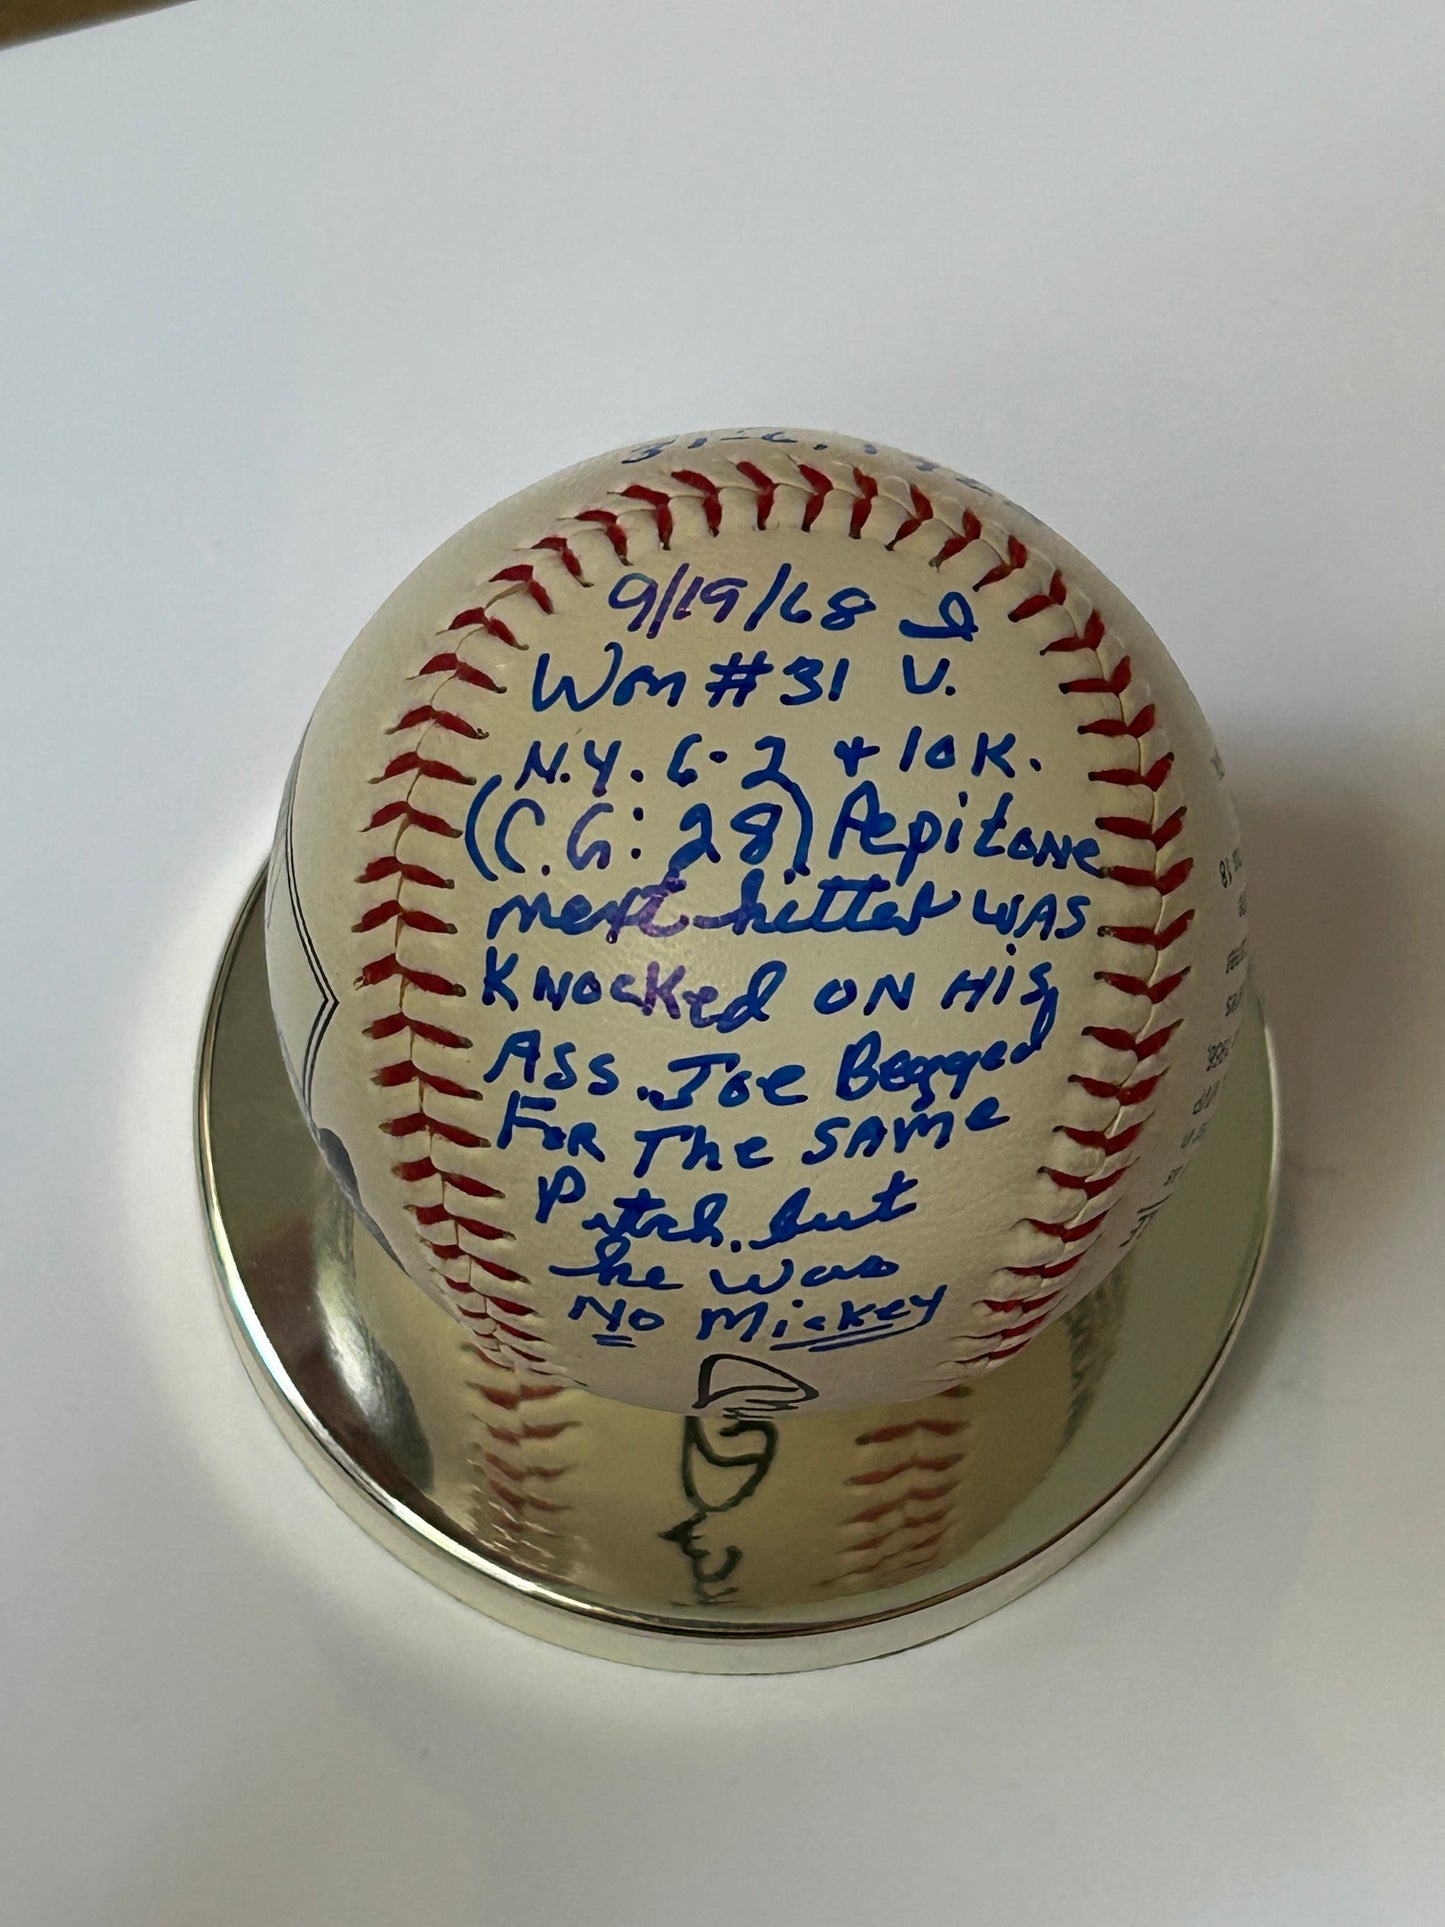 31-6, 19
9/19/68 I
Won #31 V.
N.Y. 6-2 + 10K.
(C.G: 28) Pepitone
next hitter WAS
KNOCKED ON HIS
ASS. Joe Begged
FOR The SAME
Pitch, but
he was
No Mickey